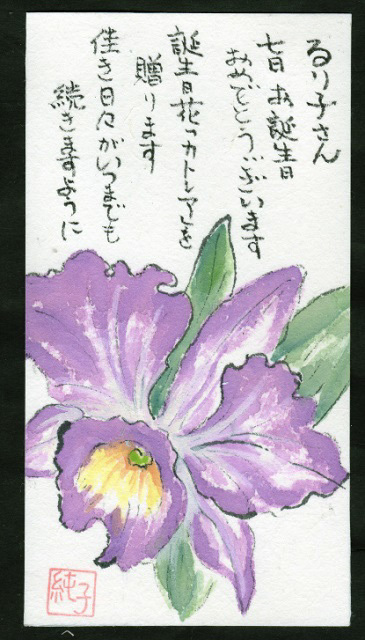 るり子さん
七日お誕生日
おめでとうございます
誕生日花「カトレア」を
贈ります
佳き日々がいつまでも
続きますように
純子